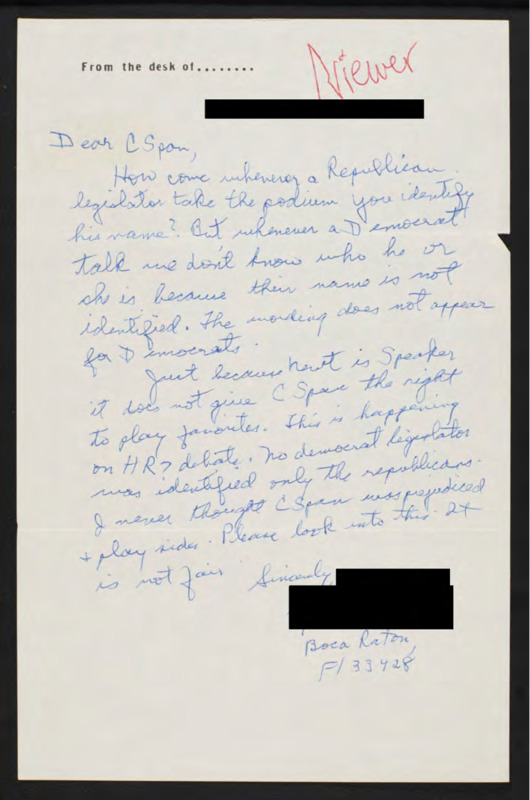 From the desk of........
Viewer
Dear C Span,
How come whenever a Republican
legislator take the podium you identify
his name? But whenever a Democrat
talk we don't know who he or
she is because their name is not
identified. The wording does not appear
for Democrats.
Just because Newt is Speaker
it does not give C Span the right
to play favorites. This is happening
on HR7 debate. No democrat legislator
was identified only the republicans.
I never thought C Span was prejudiced
+ play sides. Please look into this. It
is not fair. Sincerely
Boca Raton,
Fl 33428